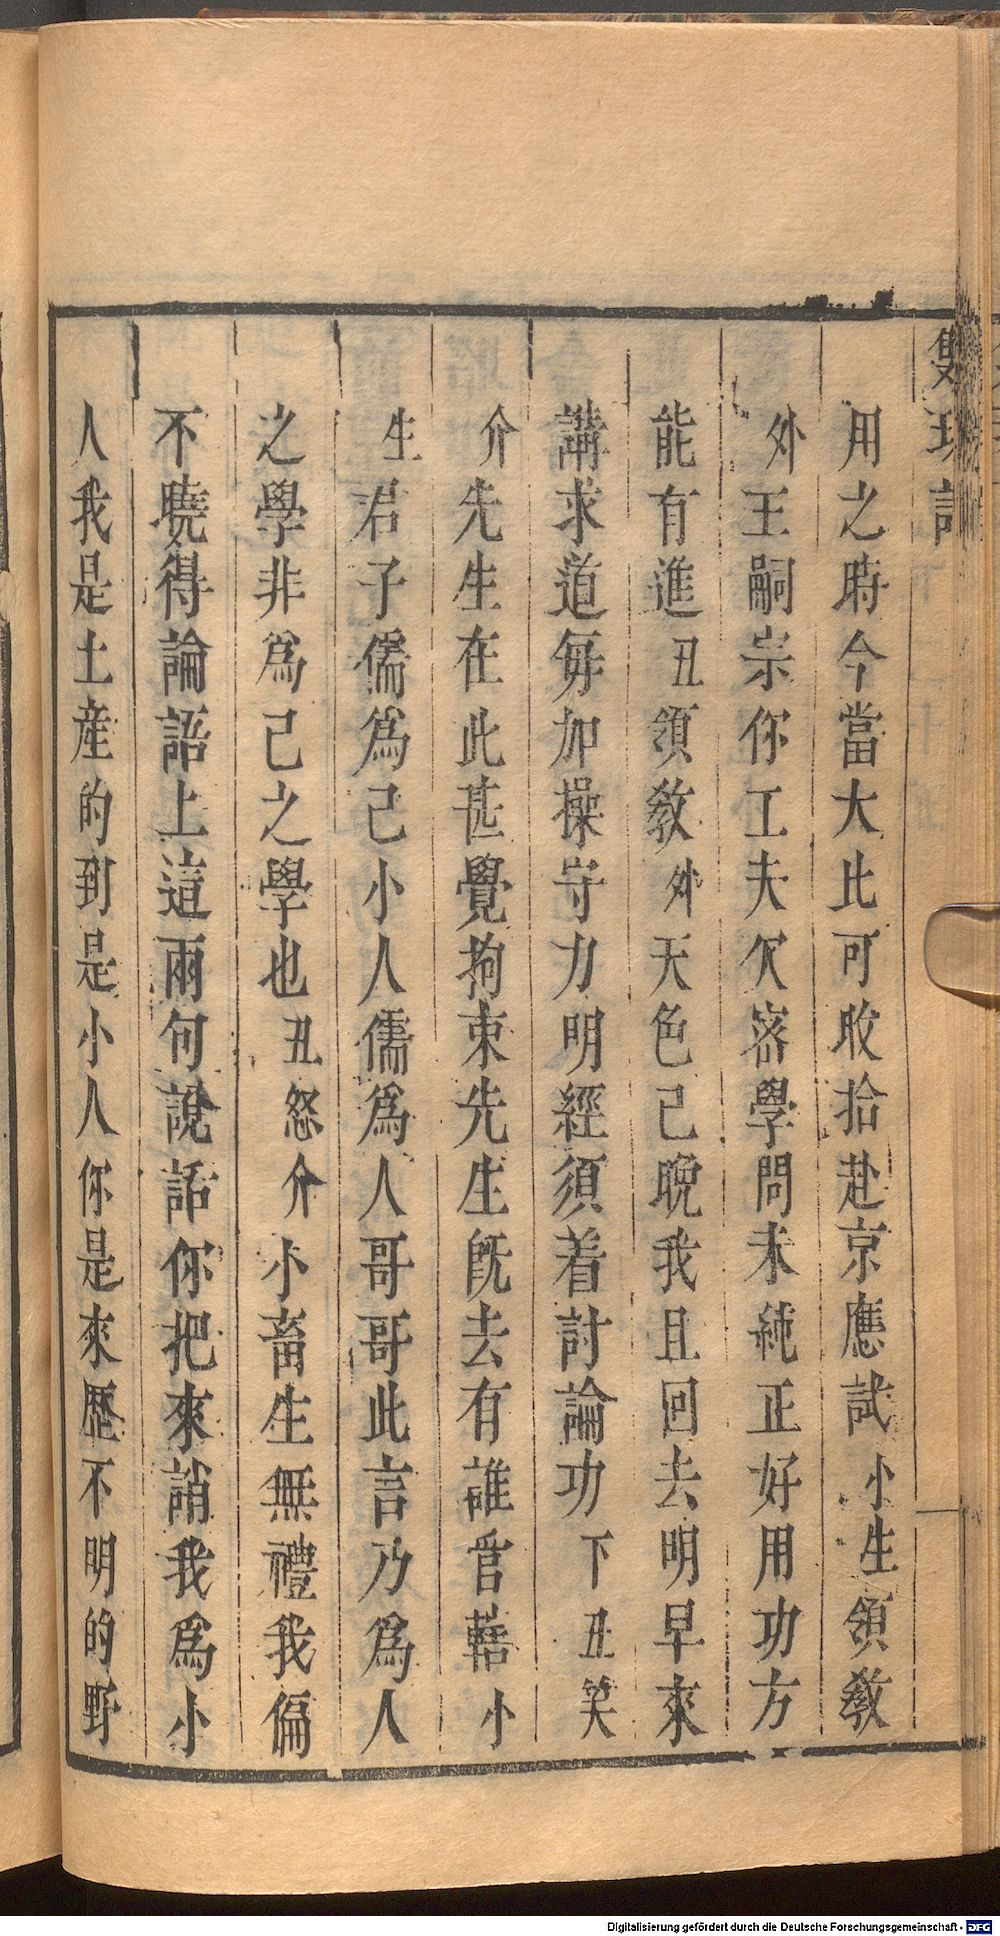 雙珠記
用之時今當大比可收拾赴京應試小生領教
外王嗣宗你工夫欠密學問未純正好用功方
能有進丑領教外天色已晚我且回去明早來
講求道毎加操守力明經須着討論功下丑笑
介先生在此甚覺拘束先生旣去有誰官轄小
生君子儒爲己小人儒爲人哥哥此言乃爲人
之學非爲己之學也丑怒介小畜生無禮我偏
不曉得論語上這兩句說話你把來誚我爲小
人我是土產的到是小人你是來歷不明的野
Digitalisierung gefördert durch die Deutsche Forschungsgemeinschaft - DFG